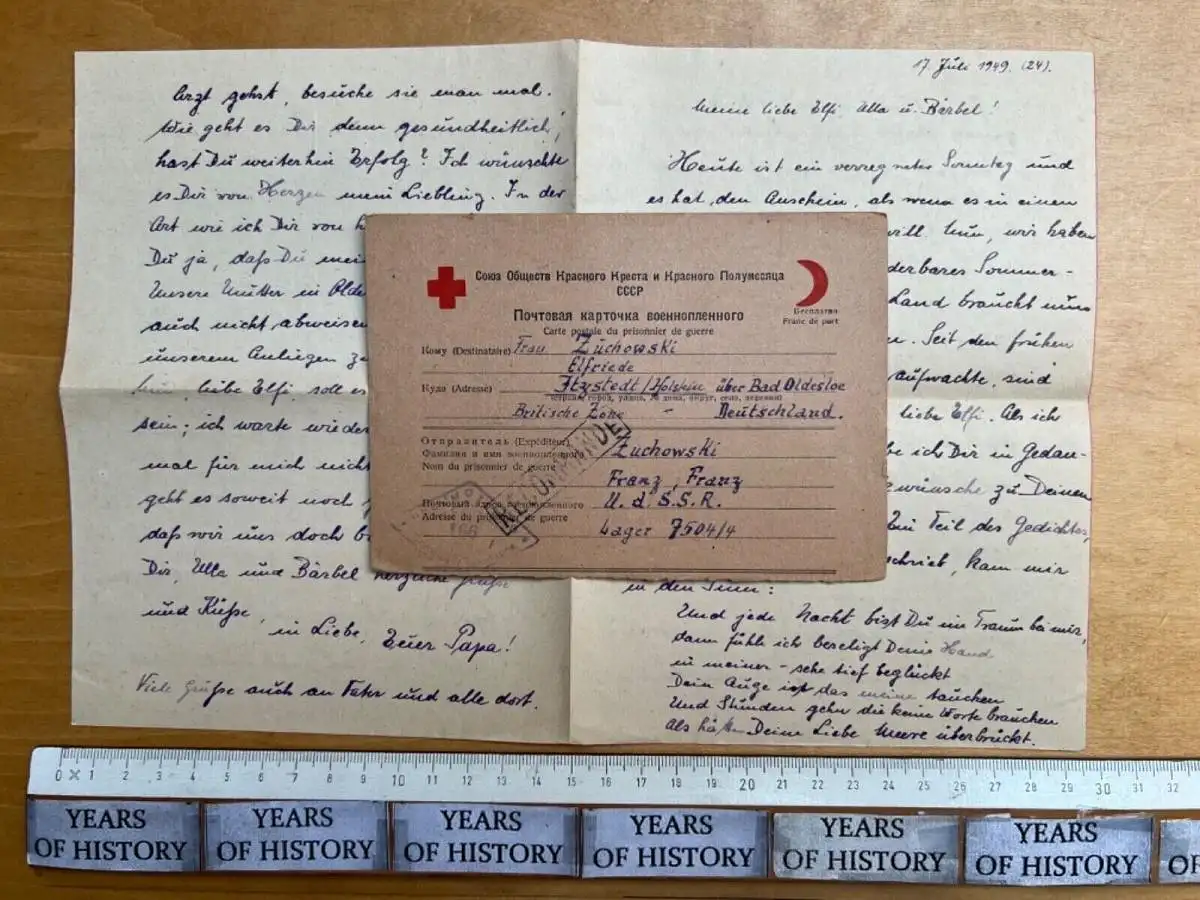 Arzt gehst, besuche sie man mal.
Wie geht es Dir denn gesundheitlich,
hast Du weiterhin Erfolg? Ich wünschte
es Dir von Herzen mein Liebling. In der
Art wie ich Dir von
Du ja, daß Du
Unsere Mutter in
auch nicht abweisen
unserem Anliegen
liebe Elfi, soll es
sein; ich warte wieder
mal für mich nicht
geht es soweit noch
daß wir uns doch
Dir, Ulla und Bärbel herzliche Grüße
und Küße,
in Liebe, Euer Papa!
Viele Grüße auch an Vater und alle dort.
17. Juli 1949. (24).
Meine liebe Elfi, Ulla u. Bärbel!
Heute ist ein verregneter Sonntag und
es hat den Anschein, als wenn es in einem
will. Nun, wir haben
Sommer-
Land braucht nun
Seit den frühen
aufwachte, sind
liebe Elfi. Als ich
ich Dir in Gedan-
zu Deinen
Ein Teil des Gedichtes,
kam mir
in den Sinn:
Und jede Nacht bist Du im Traum bei mir,
dann fühle ich beseligt Deine Hand
in meiner - sehe tief beglückt
Dein Auge ist das meine tauchen
Und Stunden gehn die keine Worte brauchen
Als hätte Deine Liebe Meere überbrückt.
Союз Обществ Красного Креста и Красного Полумесяца
СССР
Почтовая карточка военнопленного
Carte postale du prisonnier de guerre
Бесплатно
Franc de port
Кому (Destinataire) Frau Zuchowski
Elfriede
Куда (Adresse) Itzstedt/Holstein über Bad Oldesloe
(страна, город, улица, № дома, округ, село, деревня)
Britische Zone - Deutschland.
Отправитель (Expéditeur)
Фамилия и имя военнопленного Zuchowski
Nom du prisonnier de guerre
Franz, Franz
Почтовый адрес военнопленного U.d.S.S.R.
Adresse du prisonnier de guerre
Lager 7504/4
RECOMMANDÉ
0 1 2 3 4 5 6 7 8 9 10 11 12 13 14 15 16 17 18 19 20 21 22 23 24 25 26 27 28 29 30 31 32
YEARS
OF HISTORY
YEARS
OF HISTORY
YEARS
OF HISTORY
YEARS
OF HISTORY
YEARS
OF HISTORY
YEARS
OF HISTORY